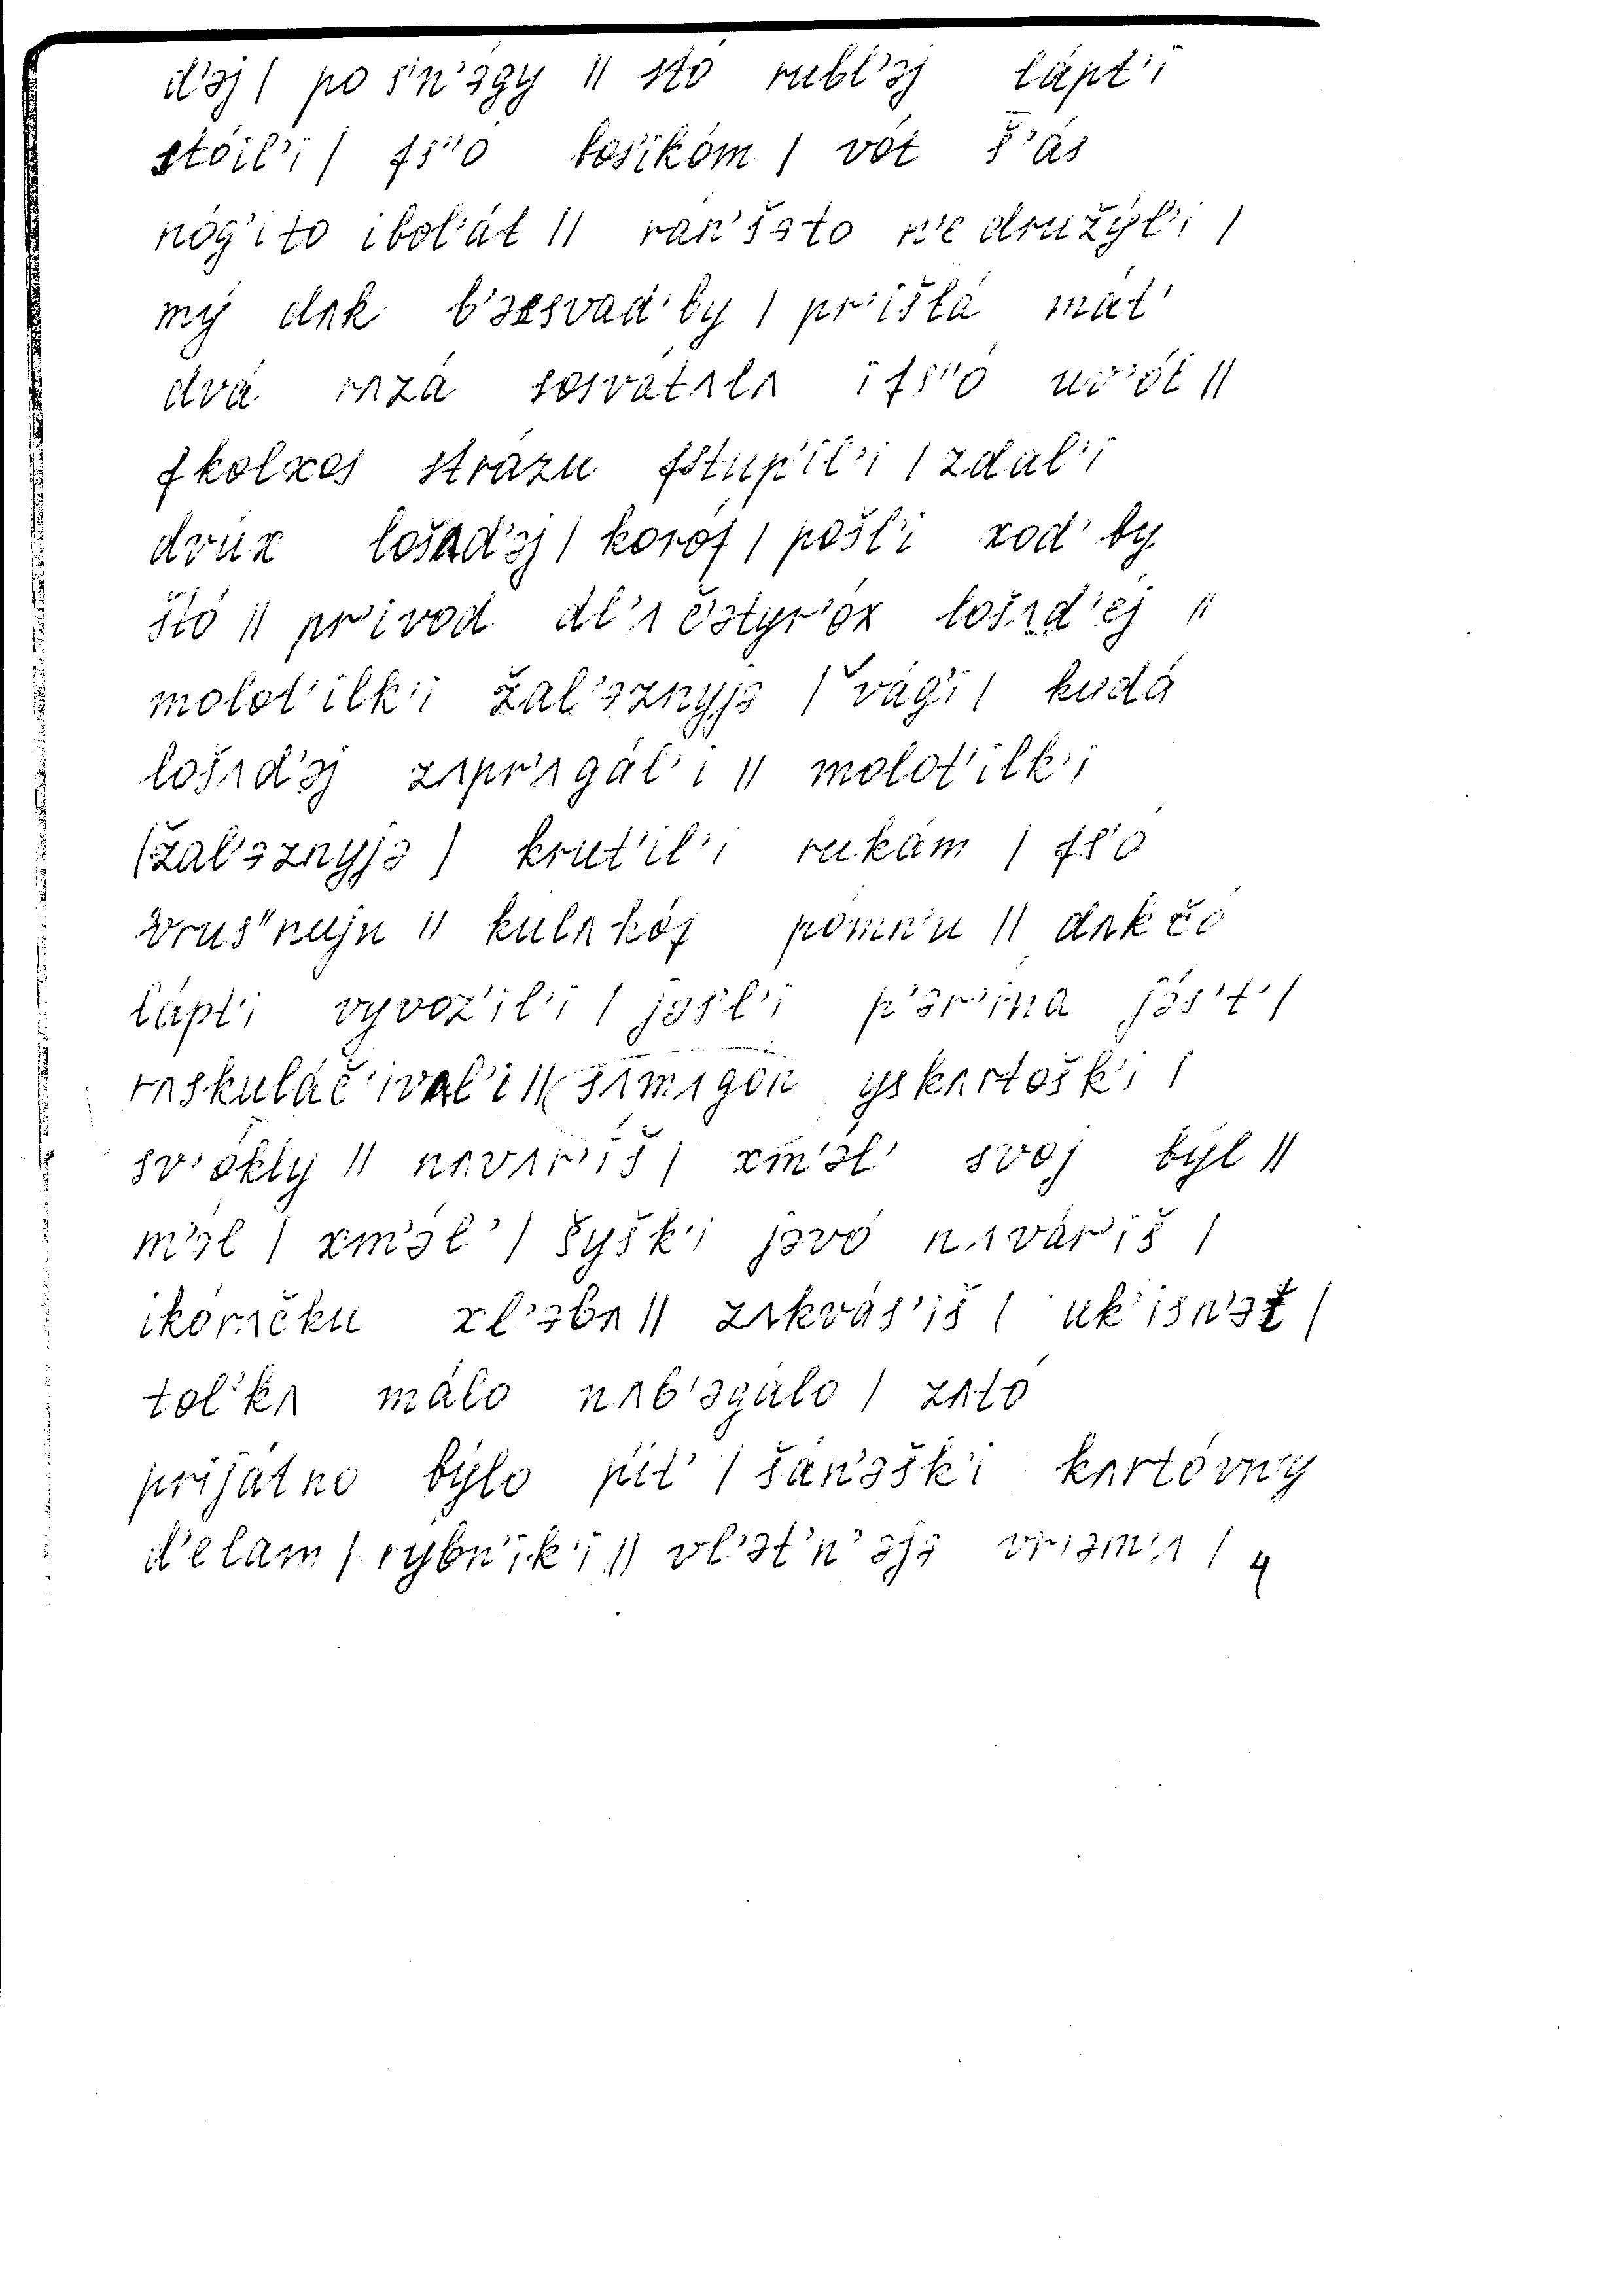 d'əj | po s'n'əgy || stó rubl'əj lápt'i
stóil'i | fs''ó bos'ikóm | vót š''ás
nóg'i to i bol'át || rán'šəto n'e družýl'i |
mý dʌk b'əsvad'by | pr'išlá mát'
dvá rʌzá sosvátʌlʌ i fs''ó uv'ól ||
fkolxos srázu fstup'íl'i | zdal'i
dvúx lošʌd'əj | koróf | pošl'i xod' by
štó || pr'ivod dl'ʌ č'ətyr'óx lošʌd'éj ||
molot'ilk'i žəl'əznyjə | vág'i | kudá
lošʌd'əj zʌpr'ʌgál'i || molot'ilk'i
(žəl'əznyjə) krut'il'i rukám | fs'ó
vrus''nuju || kulʌkóf pómn'u || dʌk čó
lápt'i vyvoz'il'i | jəsl'i p'ər'ína jés't' |
rʌskuláč'ivʌl'i || sʌmʌgón yskʌrtošk'i |
sv'ókly || nʌvʌr'íš | xm'əl' svoj býl ||
m'əl | xm'əl' | šyšk'i jəvó nʌvár'iš |
ikórʌčku xl'əbʌ || zʌkvás'iš | uk'isn'ət |
tol'kʌ málo nʌb'əgálo | zʌtó
prijátno býlo pít' | šán'əšk'i kʌrtóvny
d'elam | rýbn'ik'i || vl'ət'n'əjə vriəm'ʌ | 4